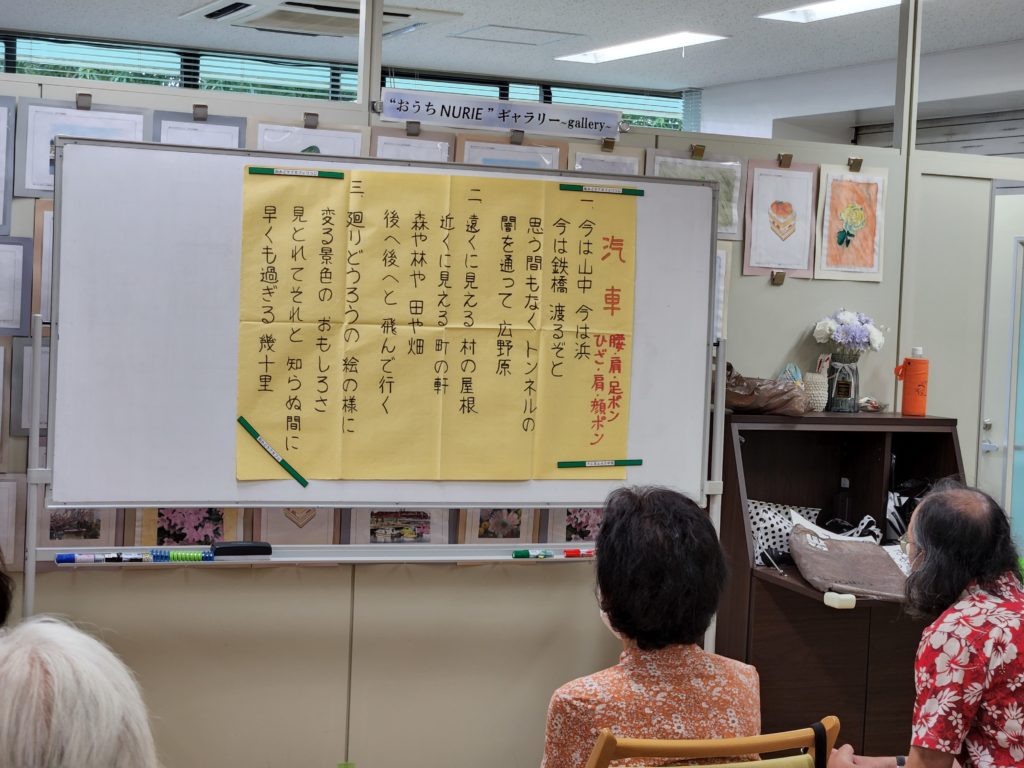 “おうちNURIE”ギャラリー~gallery~
汽車
腰・肩・足ポン
ひざ・肩・顔ポン
一 今は山中 今は浜
今は鉄橋 渡るぞと
思う間もなく トンネルの
闇を通って 広野原
二 遠くに見える 村の屋根
近くに見える 町の軒
森や林や 田や畑
後へ後へと 飛んで行く
三 廻りどうろうの 絵の様に
変る景色の おもしろさ
見とれてそれと 知らぬ間に
早くも過ぎる 幾十里